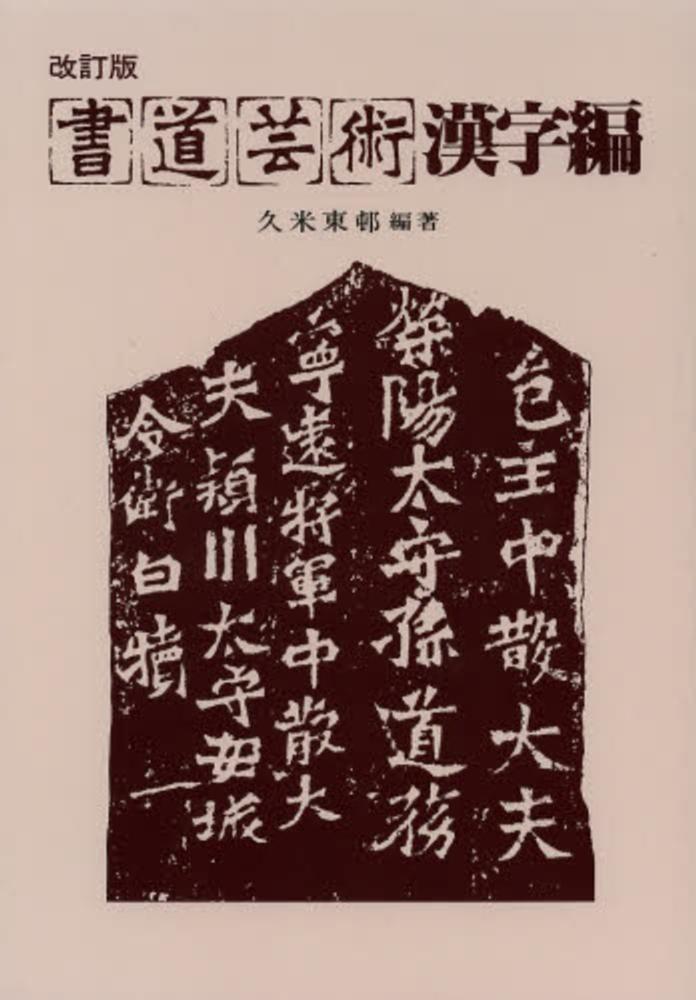 改訂版
書道芸術漢字編
久米東邨編著
邑主中散大夫
滎陽太守孫道務
寧遠將軍中散大
夫穎川太守安城
令衛白犢